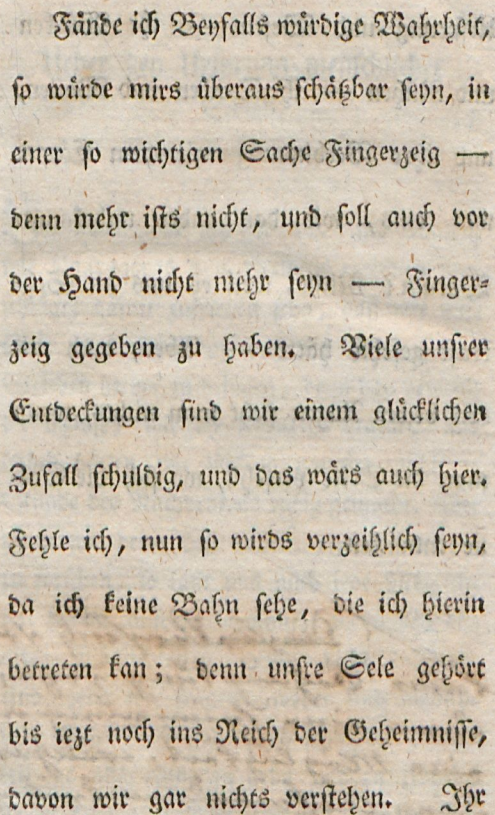 Fände ich Beyfalls würdige Wahrheit,
so würde mirs überaus schätzbar seyn, in
einer so wichtigen Sache Fingerzeig —
denn mehr ists nicht, und soll auch vor
der Hand nicht mehr seyn — Finger-
zeig gegeben zu haben. Viele unsrer
Entdeckungen sind wir einem glücklichen
Zufall schuldig, und das wärs auch hier.
Fehle ich, nun so wirds verzeihlich seyn,
da ich keine Bahn sehe, die ich hierin
betreten kan; denn unsre Sele gehört
bis iezt noch ins Reich der Geheimnisse,
davon wir gar nichts verstehen. Ihr